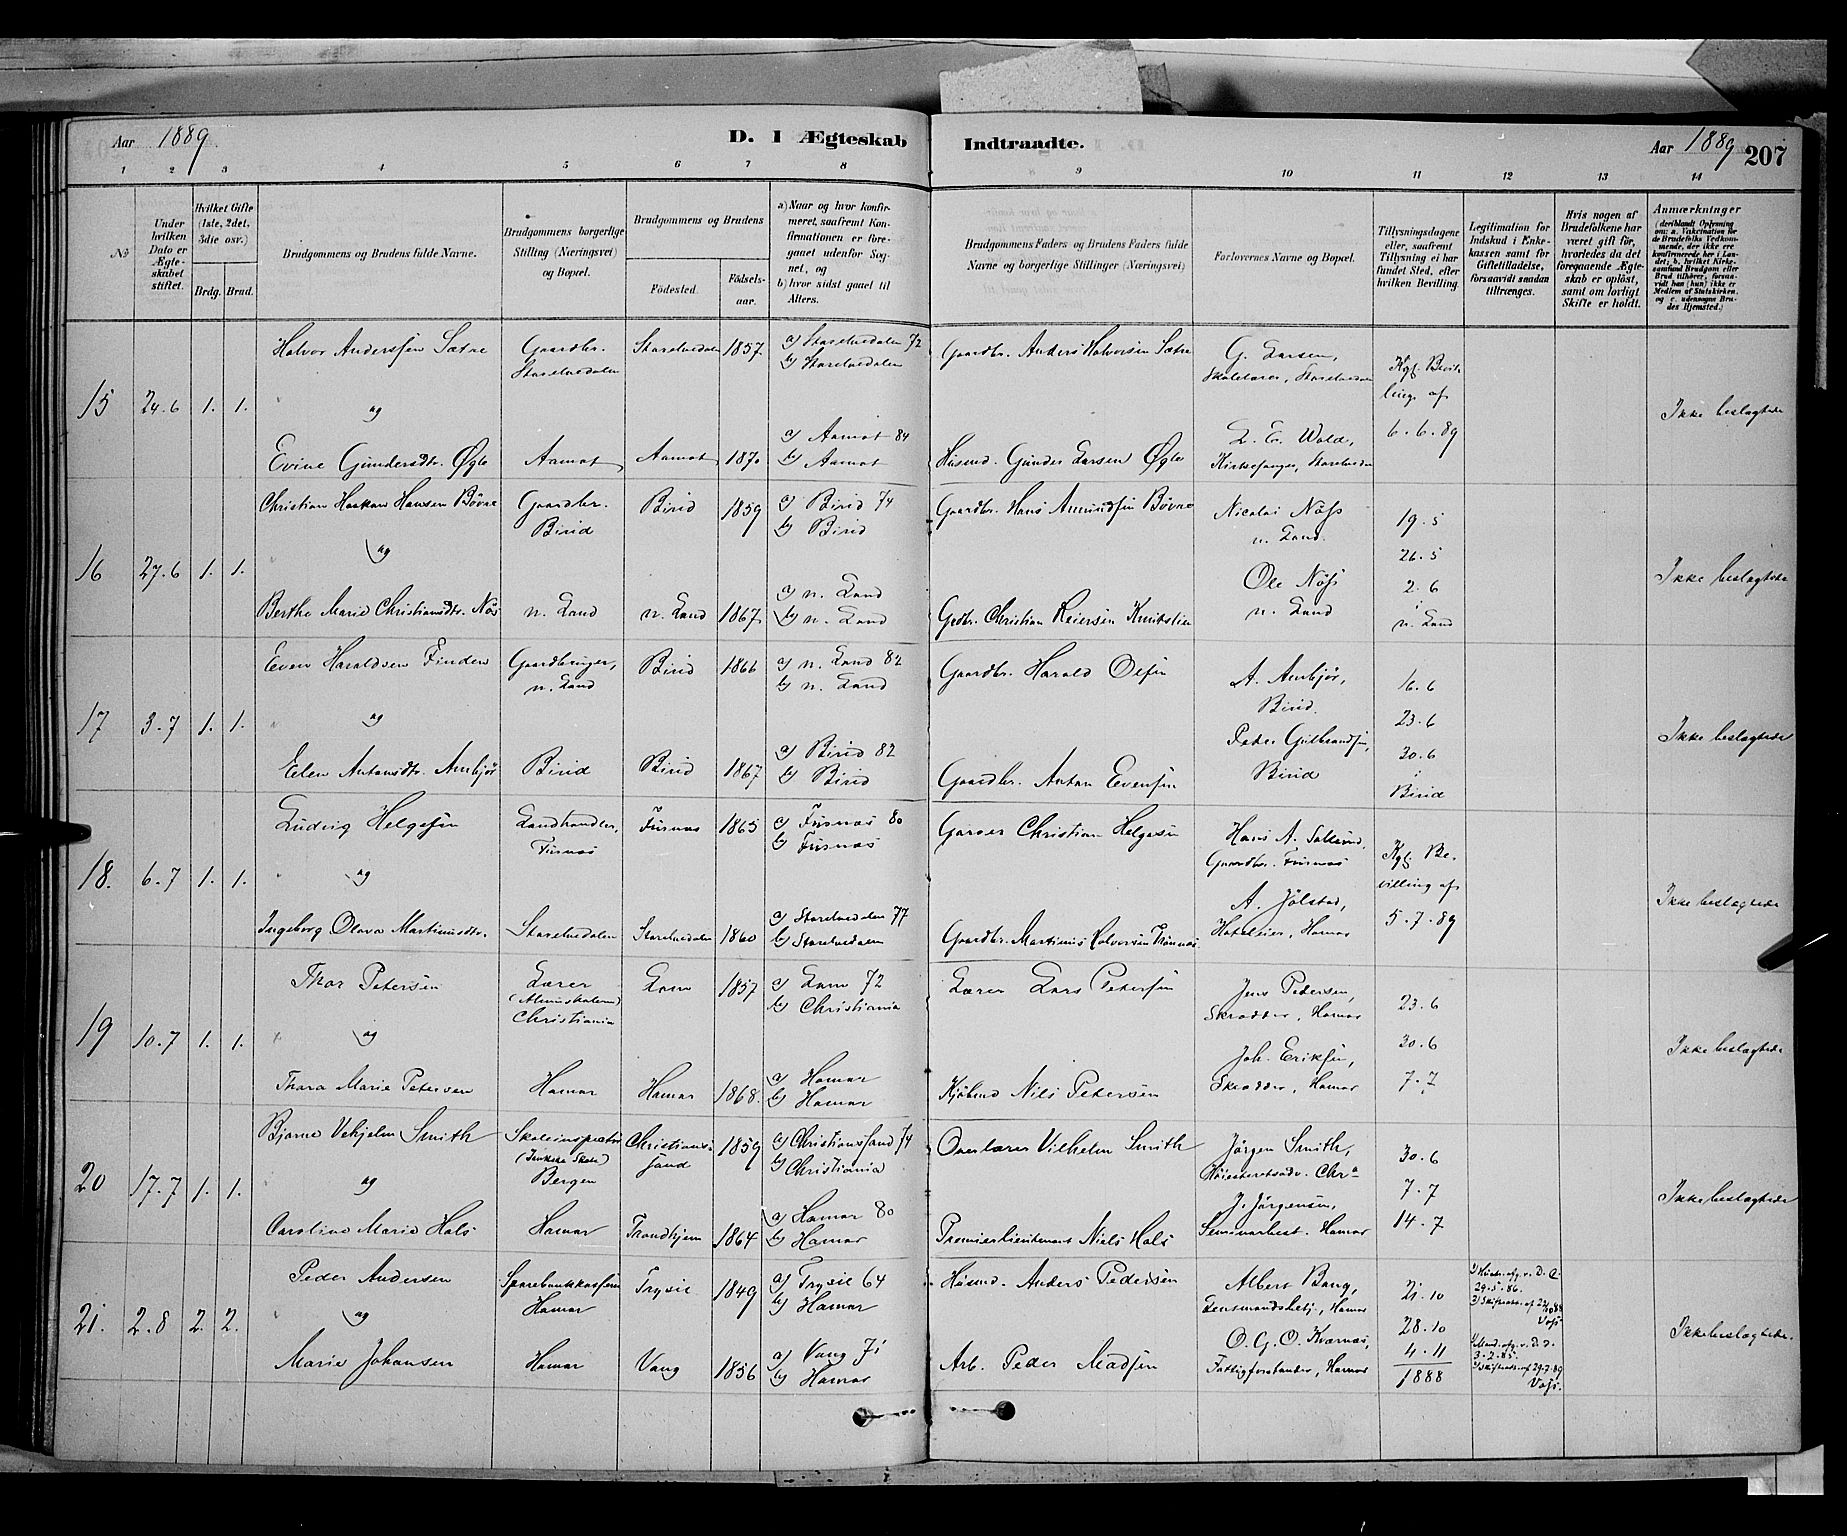 Aar 1889.
D. I Ægteskab Indtraadte.
Aar 1889
207
1 2 3 4 5 6 7 8 9 10 11 12 13 14
No
Under hvilken Dato er Ægteskabet stiftet.
Hvilket Gifte (1ste, 2det, 3die osv.)
Brdg. Brud.
Brudgommens og Brudens fulde Navne.
Brudgommens borgerlige Stilling (Næringsvei) og Bopæl.
Brudgommens og Brudens
Fødested.
Fødselsaar.
a) Naar og hvor konfirmeret, saafremt Konfirmationen er foregaaet udenfor Sognet, og
b) hvor sidst gaaet til Alters.
Brudgommens Faders og Brudens Faders fulde Navne og borgerlige Stillinger (Næringsvei)
Forlovernes Navne og Bopæl.
Tillysningsdagene eller, saafremt Tillysning ei har fundet Sted, efter hvilken Bevilling.
Legitimation for Indskud i Enkekassen samt for Giftetilladelse, forsaavidt saadan tiltrænges.
Hvis nogen af Brudefolkene har været gift før, hvorledes da det foregaaende Ægteskab er opløst, samt om lovligt Skifte er holdt.
Anmærkninger (deriblandt Oplysning om: a. Vakcination for de Brudefolks Vedkommende, der ikke ere konfirmerede her i Landet; b. hvilket Kirkesamfund Brudgom eller Brud tilhører, forsaavidt han (hun) ikke er Medlem af Statskirken, og c. udensogns Brudes Hjemsted.)
15 24.6 1. 1.
Halvor Anderssen Sætre
Gaardbr. Storelvedalen
Storelvedalen 1857.
a) Storelvedalen 72
b) Storelvedalen
Gaardbr. Anders Halvorsen Sætre
G. Larsen,
Skolelærer, Storelvedalen
Kgl. Bevillings af
6.6.89
Ikke beslægtede
og
Evine Gundersdtr. Øgle
Aamot Aamot 1870
a) Aamot 84
b) Aamot
Husmd. Gunder Larsen Øgle
L. E. Wold,
Kirkesanger, Storelvedalen
16 27.6 1. 1.
Christian Haakon Hansen Bøvre
Gaardbr. Birid
Birid 1859
a) Birid 74
b) Birid
Gaardbr. Hans Amundsen Bøvre
Nicolai Nøss
n. Land.
19.5
26.5
2.6
i
n. Land
Ikke beslægtede
og
Berthe Marie Christiansdtr. Nøs
n. Land n. Land 1867
a) n. Land
b) n. Land
Gdbr. Christian Reiersen
Ole Nøss
n. Land
17 3.7 1. 1.
Even Haraldsen Finden
Gaardbruger, n. Land
Birid 1866
a) n. Land 82
b) n. Land
Gaardbr. Harald Olsen
A. Ambjør,
Birid.
16.6
23.6
30.6
i
Birid
Ikke beslægtede
og
Elen Antonsdtr. Ambjør
Birid Birid 1867
a) Birid 82
b) Birid
Gaardbr. Anton Evensen
Peder Gulbrandsen,
Birid
18. 6.7 1. 1.
Ludvig Helgesen
Landhandler, Furnæs
Furnæs 1865
a) Furnæs 80
b) Furnæs
Garver Christian Helgesen
Hans A.
Gaardbr. Furnæs
Kgl. Bevilling af
5.7.89
Ikke beslægtede
og
Ingeborg Olava Martinusdtr.
Storelvedalen Storelvedalen 1860
a) Storelvedalen 77
b) Storelvedalen
Gaardbr. Martinus Halvorsen
A. Jølstad,
Hoteleier, Hamar
19 10.7 1. 1.
Thor Petersen
Lærer
Christiania
Lom 1857
a) Lom 72
b) Christiania
Lærer Lars Petersen
Jens Pedersen,
Skrædder, Hamar
23.6
30.6
7.7
Ikke beslægtede
og
Thora Marie Petersen
Hamar Hamar 1868.
a) Hamar
b) Hamar
Kjøbmd Nils Petersen
Joh. Eriksen,
Skrædder, Hamar
20 17.7 1. 1.
Bjarne Vilhjelm Smith
Skoleinspectør
Bergen
Christianssand 1859
a) Christianssand 74
b) Christiania
Overlærer Vilhelm Smith
Jørgen Smith,
Høiesteretsadv. Chra
30.6
7.7
14.7
Ikke beslægtede
og
Caroline Marie Hals
Hamar Trondhjem 1864
a) Hamar 80
b) Hamar
Premierlieutenant Niels Hals
J. Jørgensen,
Seminarbest. Hamar
21. 2.8 2. 2.
Peder Andersen
Sparebankkasserer
Hamar
Trysil 1849
a) Trysil 64
b) Hamar
Husmd. Anders Pedersen
Albert Bang,
Lensmandsbetj., Hamar
21.10
28.10
4.11
1888
29.5.86.
Ikke beslægtede.
og
Marie Johansen
Hamar Vang 1856
a) Vang 71
b) Hamar
Arb. Peder Madsen
O. G. O. Kværnæs,
Fattigforstander, Hamar
3.2.85.